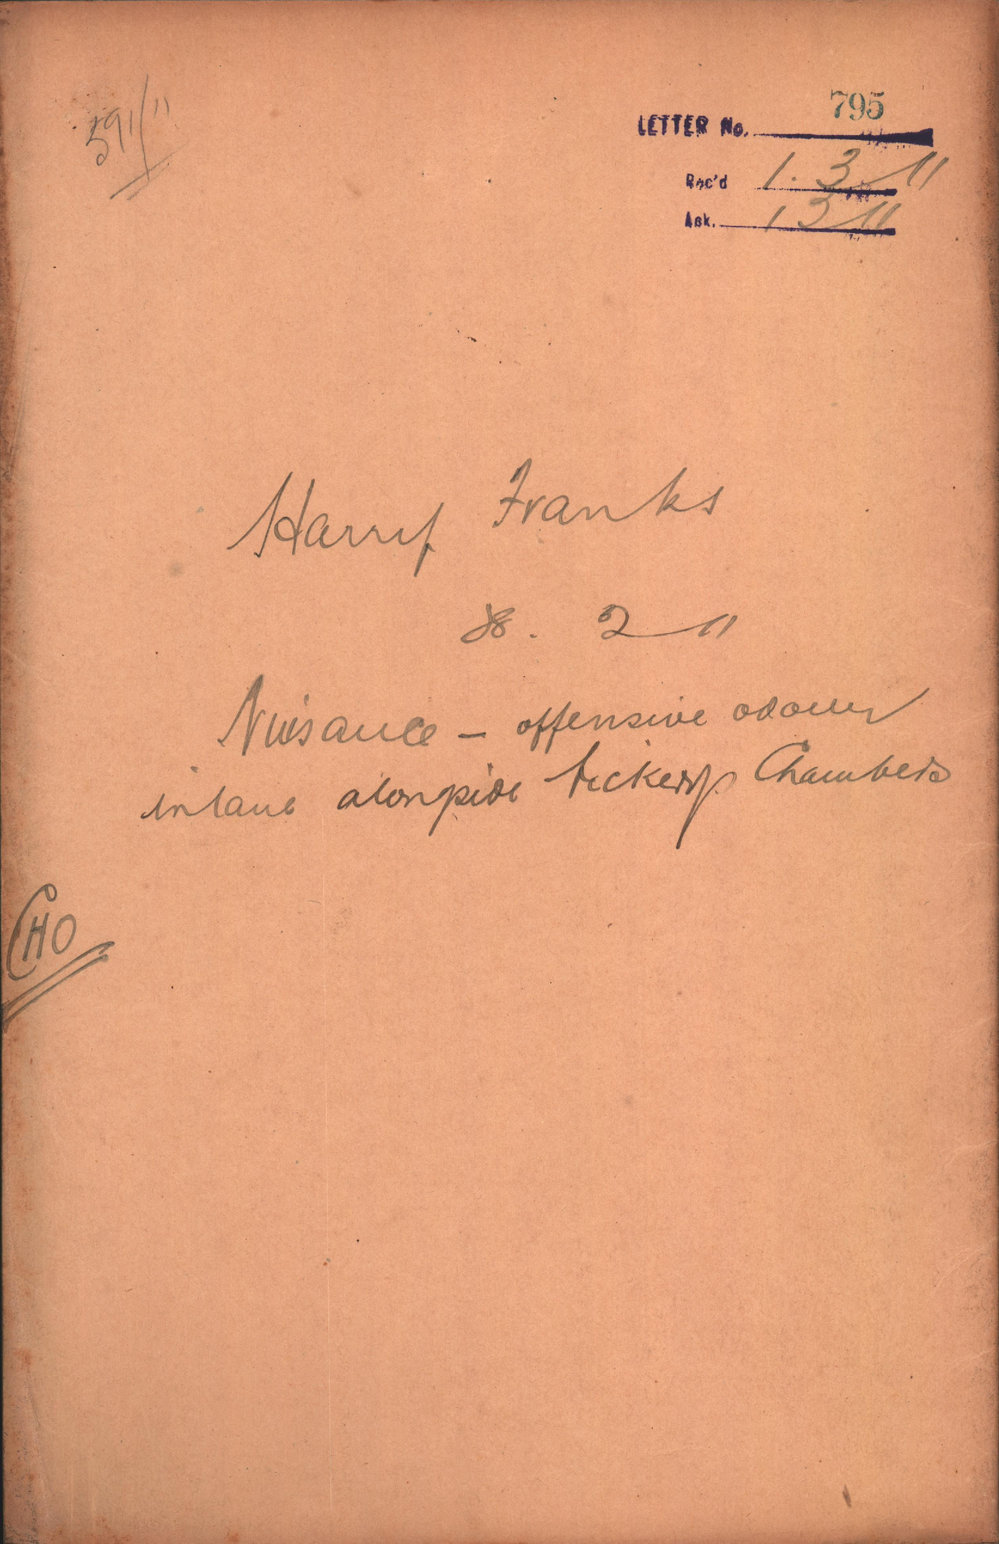 591/11
LETTER No. 795
Rec'd 1.3.11
Ack. 1 3 11
Harry Franks
28.2 11
Nuisance - offensive odour
in lane alongside Vickery's Chambers
CHO